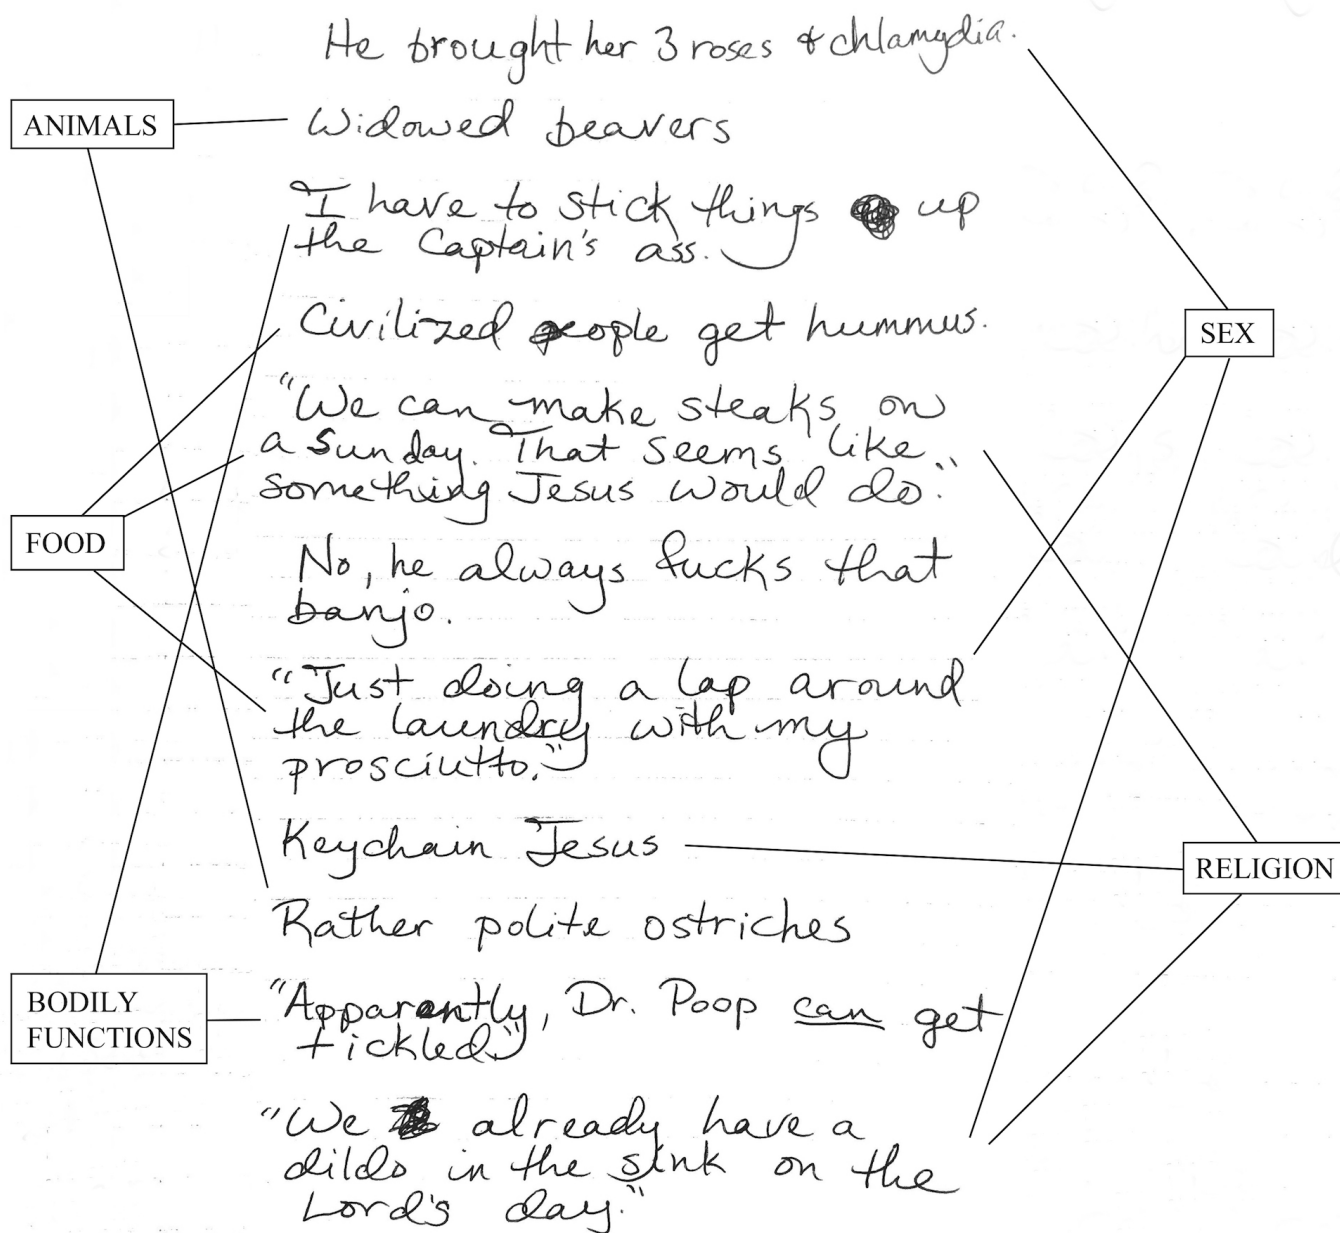 He brought her 3 roses & chlamydia.
ANIMALS
Widowed beavers
I have to stick things up
the Captain's ass.
Civilized people get hummus.
SEX
"We can make steaks on
a Sunday. That seems like
something Jesus would do."
FOOD
No, he always fucks that
banjo.
"Just doing a lap around
the laundry with my
prosciutto."
Keychain Jesus
RELIGION
Rather polite ostriches
BODILY
FUNCTIONS
"Apparently, Dr. Poop can get
tickled."
"We already have a
dildo in the sink on the
Lord's day."